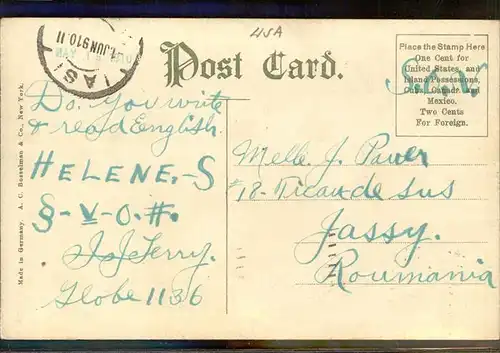 USA
IASI
1 JUN 910.11
Post Card.
Place the Stamp Here
One Cent for
United States, and
Island Possessions,
Cuba, Canada, and
Mexico.
Two Cents
For Foreign.
Made in Germany. A. C. Bosselman & Co., New York.
Do. You write
& read Eenglish.
HELENE.-S
§-V-O.#.
Jerry.
Globe 1136
Melle. J. Pauer
18-Ticau de sus
Jassy.
Roumania